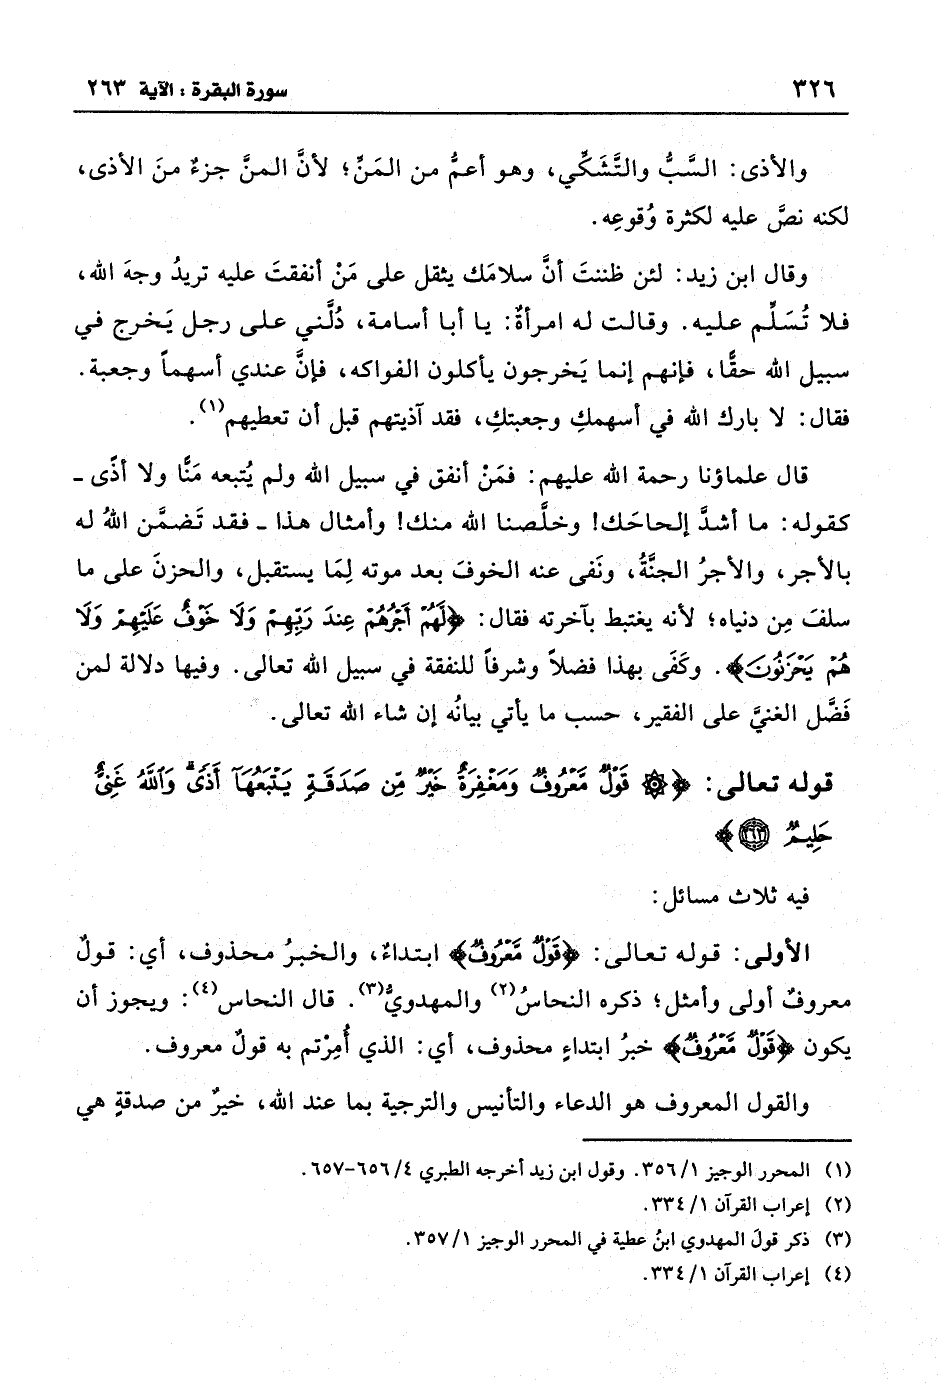 ٣٢٦
سورة البقرة : الآية ٢٦٣
والأذى: السَّبُّ والتَّشَكِّي، وهو أعمُّ من المَنِّ؛ لأنَّ المنَّ جزءٌ منَ الأذى،
لكنه نصَّ عليه لكثرة وُقوعِه.
وقال ابن زيد: لئن ظننتَ أنَّ سلامَك يثقل على مَنْ أنفقتَ عليه تريدُ وجهَ الله،
فلا تُسَلِّم عليه. وقالت له امرأةٌ: يا أبا أسامة، دُلَّني على رجل يَخرج في
سبيل الله حقًّا، فإنهم إنما يَخرجون يأكلون الفواكه، فإنَّ عندي أسهماً وجعبة.
فقال: لا بارك الله في أسهمكِ وجعبتكِ، فقد آذيتهم قبل أن تعطيهم(١).
قال علماؤنا رحمة الله عليهم: فمَنْ أنفق في سبيل الله ولم يُتبعه مَنًّا ولا أذًى ـ
كقوله: ما أشدَّ إلحاحَك! وخلَّصنا الله منك! وأمثال هذا ـ فقد تَضمَّن اللهُ له
بالأجر، والأجرُ الجنَّةُ، ونَفى عنه الخوفَ بعد موته لِمَا يستقبل، والحزنَ على ما
سلفَ مِن دنياه؛ لأنه يغتبط بآخرته فقال: ﴿لَهُمْ أَجْرُهُمْ عِندَ رَبِّهِمْ وَلَا خَوْفٌ عَلَيْهِمْ وَلَا
هُمْ يَحْزَنُونَ﴾. وكَفَى بهذا فضلاً وشرفاً للنفقة في سبيل الله تعالى. وفيها دلالة لمن
فَضَّل الغنيَّ على الفقير، حسب ما يأتي بيانُه إن شاء الله تعالى.
قوله تعالى: ﴿۞ قَوْلٌ مَّعْرُوفٌ وَمَغْفِرَةٌ خَيْرٌ مِّن صَدَقَةٍ يَتْبَعُهَآ أَذًىۗ وَٱللَّهُ غَنِىٌّ
حَلِيمٌ ٢٦٣﴾
فيه ثلاث مسائل:
الأولى: قوله تعالى: ﴿قَوْلٌ مَّعْرُوفٌ﴾ ابتداءٌ، والخبرُ محذوف، أي: قولٌ
معروفٌ أولى وأمثل؛ ذكره النحاسُ(٢) والمهدويُّ(٣). قال النحاس(٤): ويجوز أن
يكون ﴿قَوْلٌ مَّعْرُوفٌ﴾ خبرُ ابتداءٍ محذوف، أي: الذي أُمِرْتم به قولٌ معروف.
والقول المعروف هو الدعاء والتأنيس والترجية بما عند الله، خيرٌ من صدقةٍ هي
(١) المحرر الوجيز ٣٥٦/١. وقول ابن زيد أخرجه الطبري ٤/ ٦٥٦-٦٥٧.
(٢) إعراب القرآن ٣٣٤/١.
(٣) ذكر قولَ المهدوي ابنُ عطية في المحرر الوجيز ٣٥٧/١.
(٤) إعراب القرآن ٣٣٤/١.